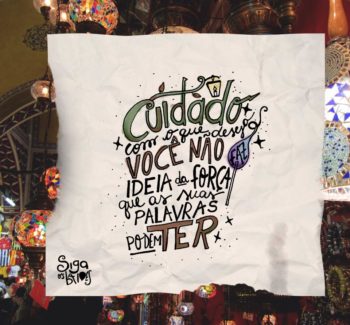 Cuidado
com o que deseja
VOCÊ NÃO FAZ
IDEIA da FORÇA
que as suas
PALAVRAS
PODEM TER
Siga
os